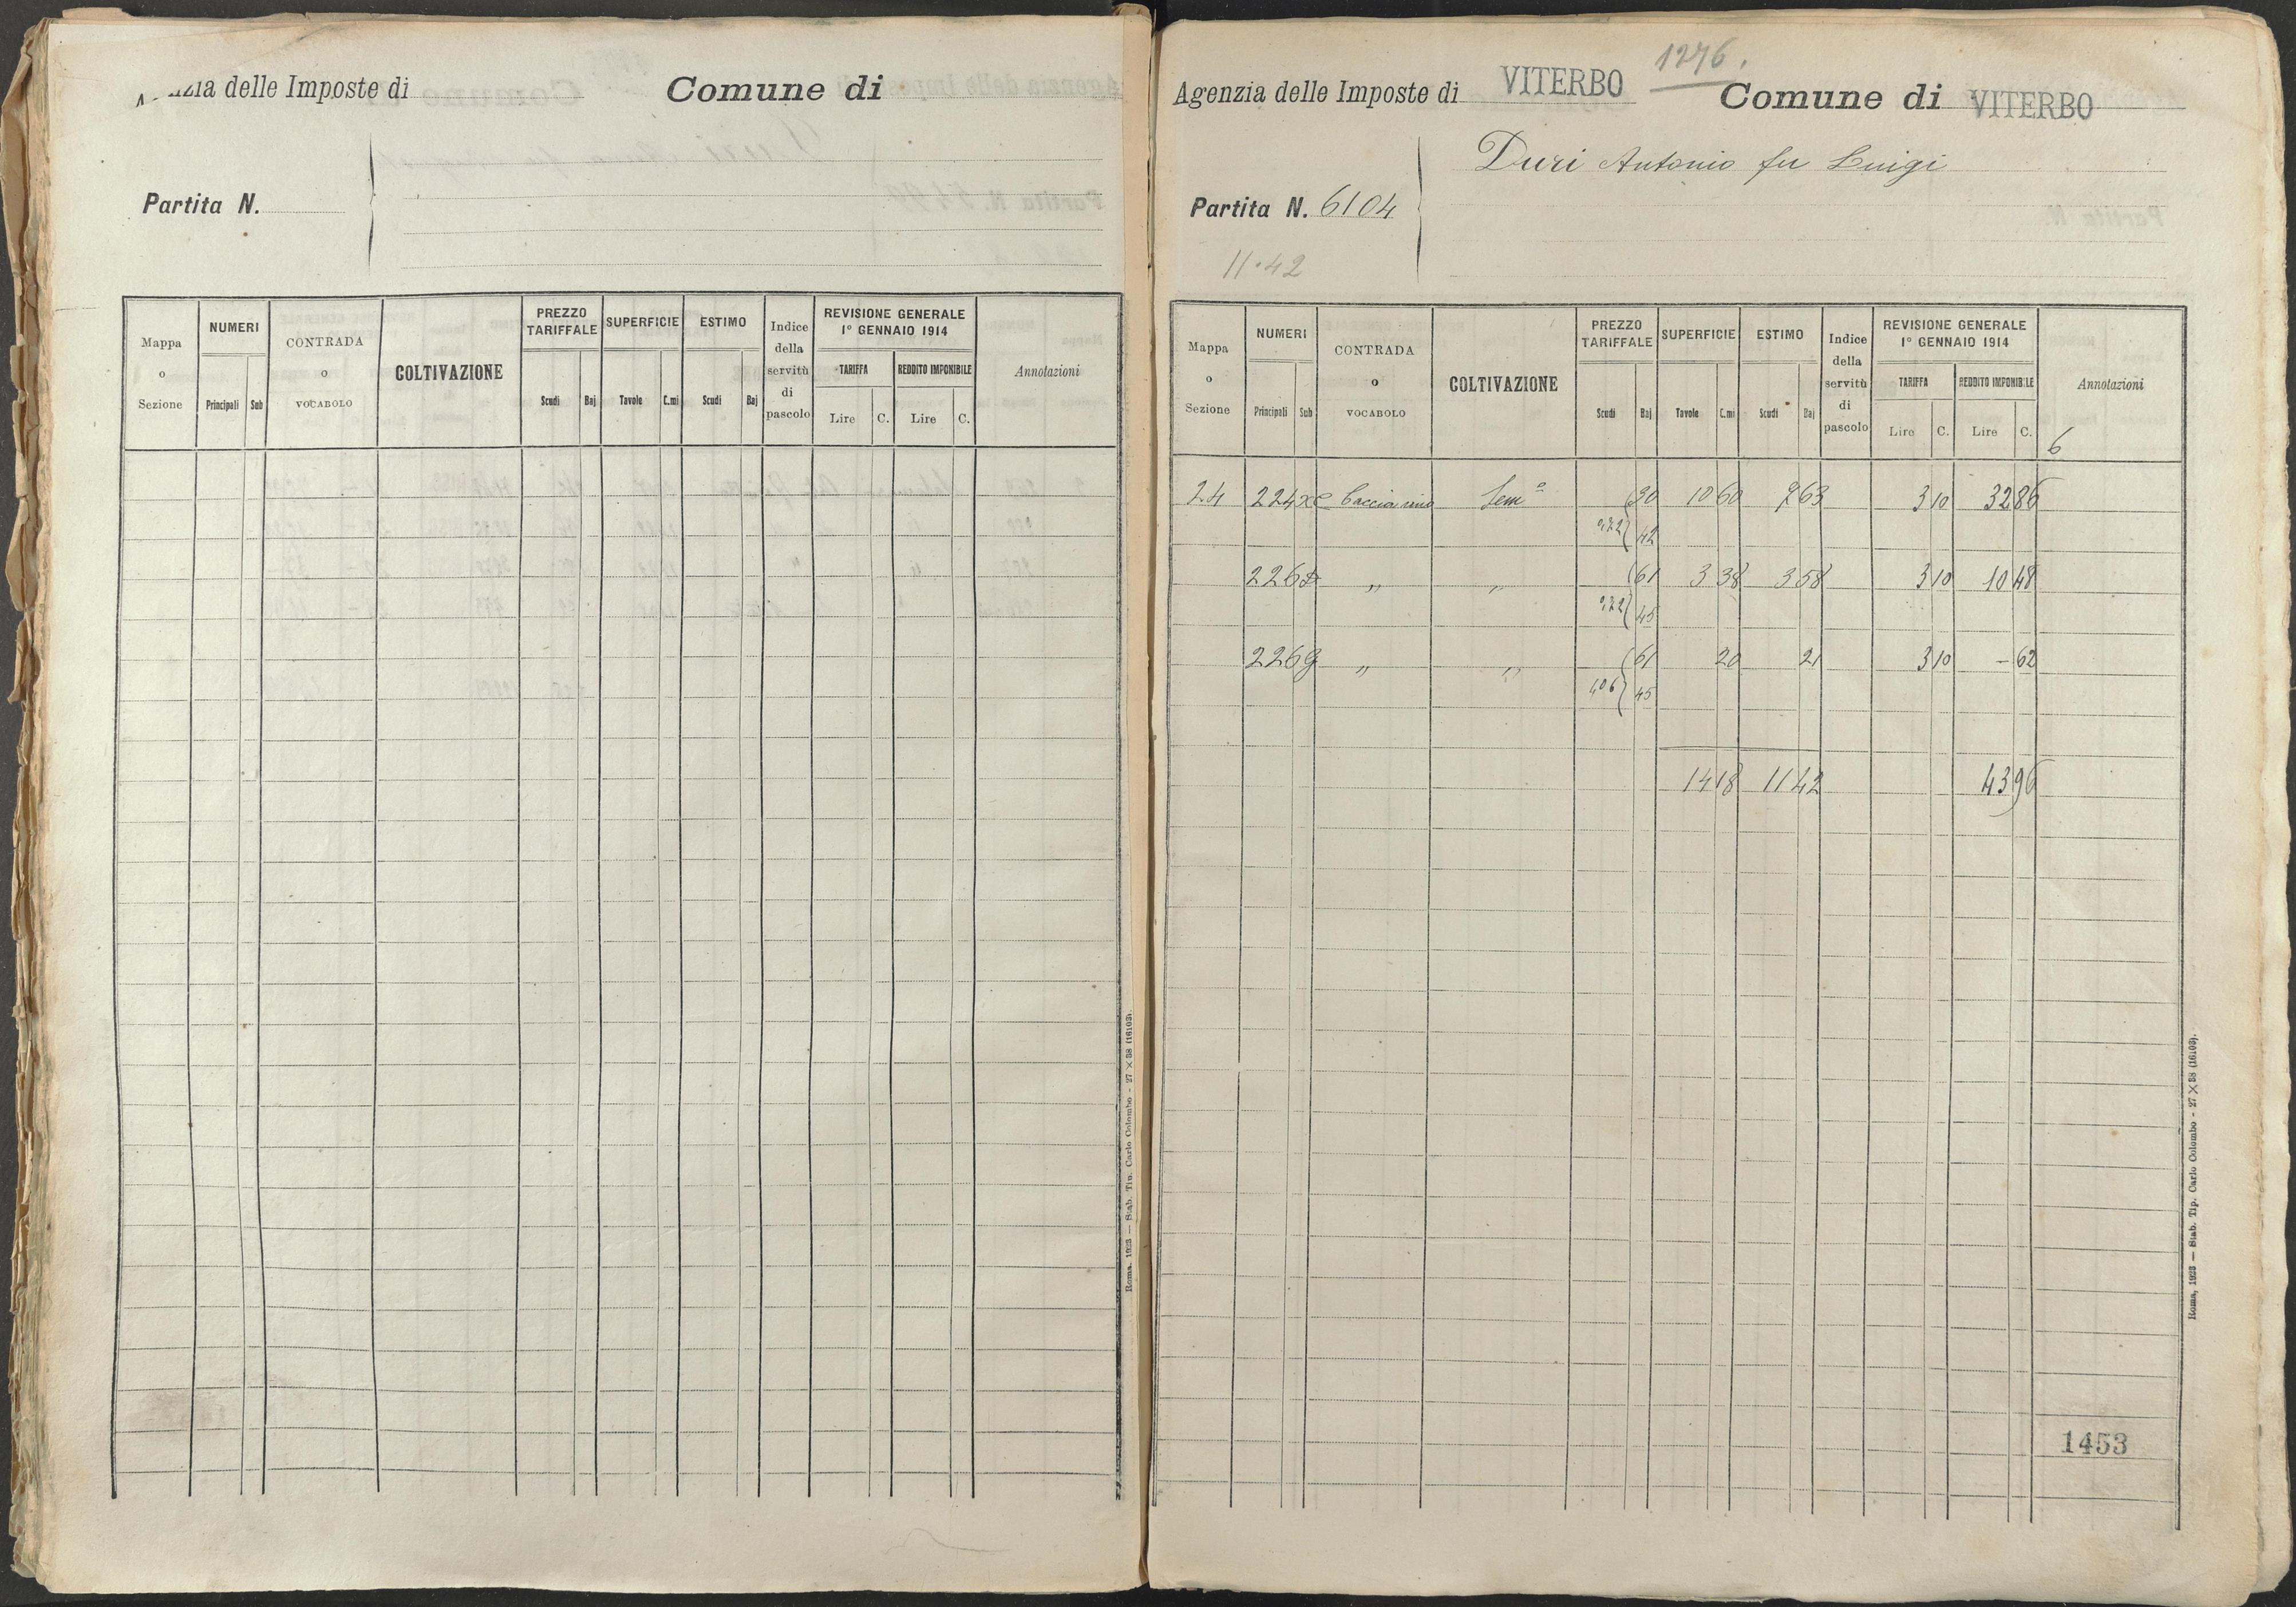 delle Imposte di Comune di
Partita N.
Mappa o Sezione
NUMERI
Principali Sub
CONTRADA o VOCABOLO
COLTIVAZIONE
PREZZO TARIFFALE
Scudi Baj
SUPERFICIE
Tavole C.mi
ESTIMO
Scudi Baj
Indice della servitù di pascolo
REVISIONE GENERALE
1° GENNAIO 1914
TARIFFA REDDITO IMPONIBILE
Lire C. Lire C.
Annotazioni
Roma, 1923 — Stab. Tip. Carlo Colombo - 27 × 38 (16103).
1276.
Agenzia delle Imposte di VITERBO Comune di VITERBO
Duri Antonio fu Luigi
Partita N. 6104
11.42
Mappa o Sezione
NUMERI
Principali Sub
CONTRADA o VOCABOLO
COLTIVAZIONE
PREZZO TARIFFALE
Scudi Baj
SUPERFICIE
Tavole C.mi
ESTIMO
Scudi Baj
Indice della servitù di pascolo
REVISIONE GENERALE
1° GENNAIO 1914
TARIFFA REDDITO IMPONIBILE
Lire C. Lire C.
Annotazioni
6
24 224 Sem° 90 10 60 7 63 3 10 32 86
222 42
226 " " 61 3 38 3 58 3 10 10 48
222 45
226 g " " 61 20 21 3 10 - 62
406 45
14 18 11 42 43 96
1453
Roma, 1923 — Stab. Tip. Carlo Colombo - 27 × 38 (16103).